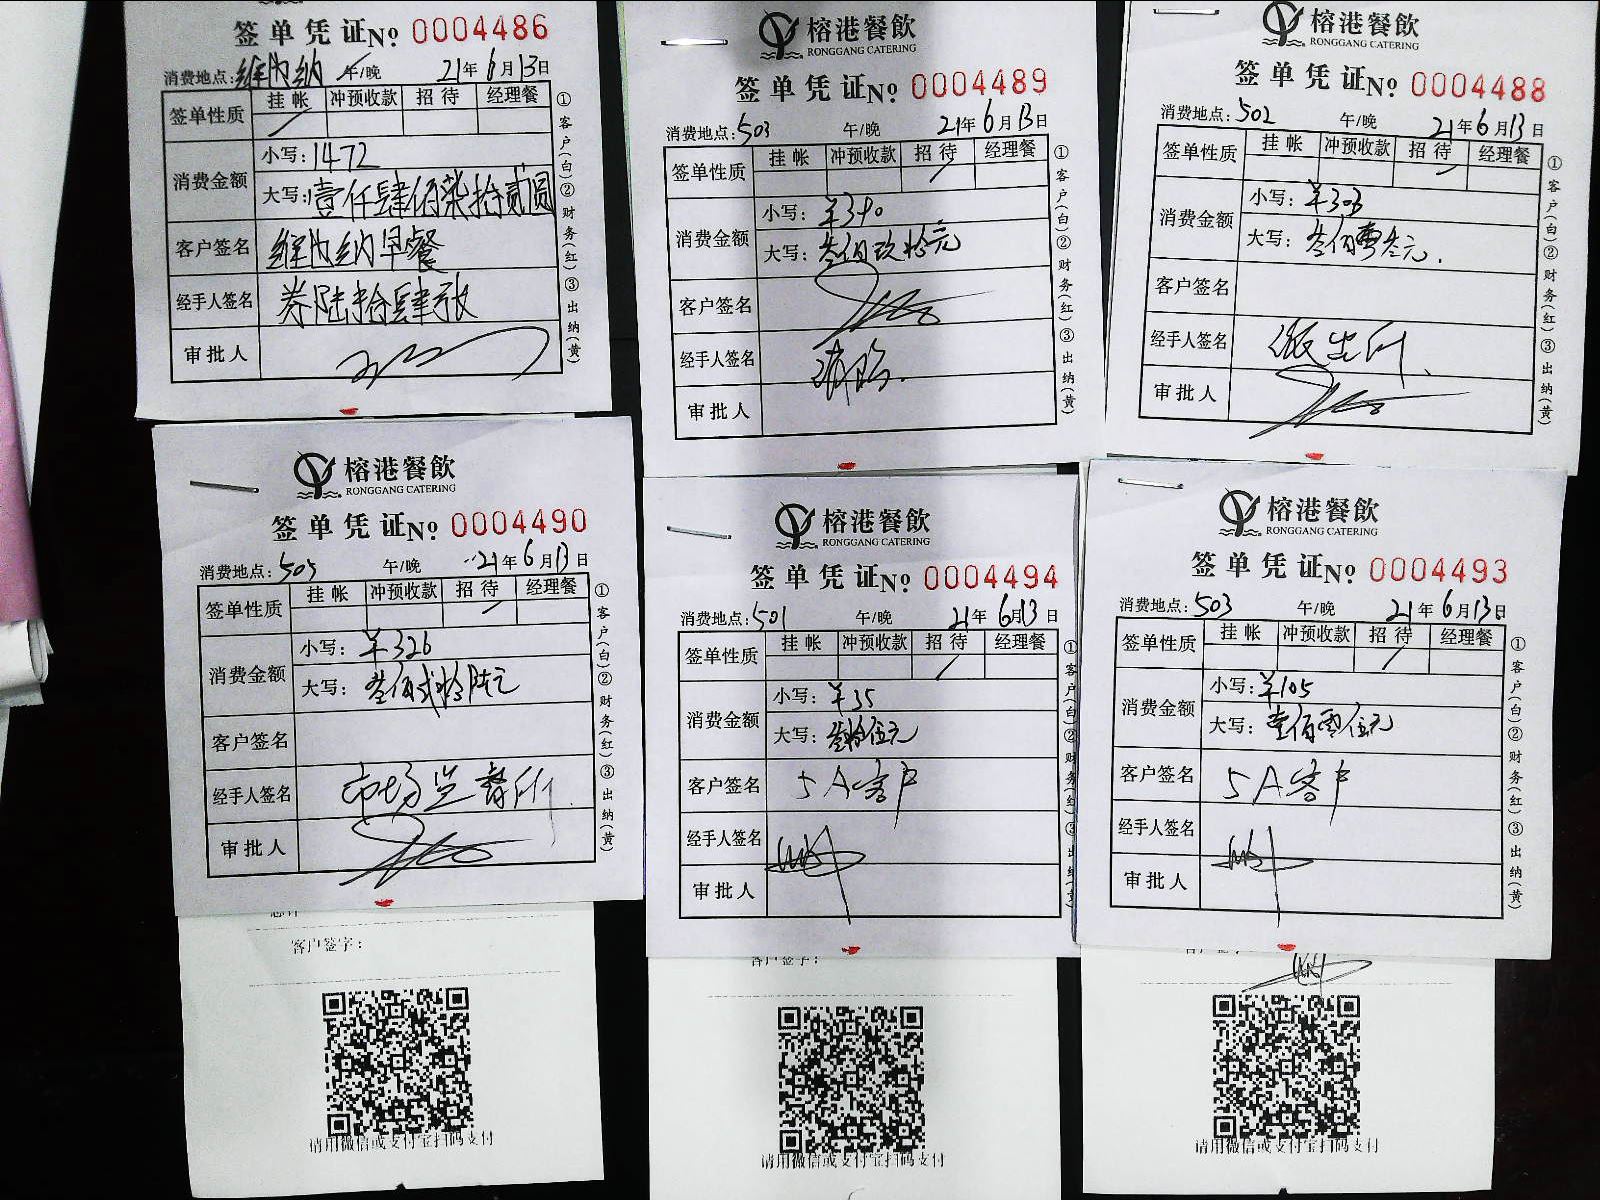 签单凭证 No 0004486
消费地点: 维也纳 午/晚 21年6月13日
签单性质 挂帐 冲预收款 招待 经理餐
消费金额 小写: 1472
大写: 壹仟肆佰柒拾贰圆
客户签名 维也纳早餐
经手人签名 券陆拾肆张
审批人
①客户(白)②财务(红)③出纳(黄)
榕港餐飲
RONGGANG CATERING
签单凭证 No 0004489
消费地点: 503 午/晚 21年6月13日
签单性质 挂帐 冲预收款 招待 经理餐
消费金额 小写: ¥390
大写: 叁佰玖拾元
客户签名
经手人签名
审批人
①客户(白)②财务(红)③出纳(黄)
榕港餐飲
RONGGANG CATERING
签单凭证 No 0004488
消费地点: 502 午/晚 21年6月13日
签单性质 挂帐 冲预收款 招待 经理餐
消费金额 小写: ¥303
大写: 叁佰零叁元.
客户签名
经手人签名 派出所
审批人
①客户(白)②财务(红)③出纳(黄)
榕港餐飲
RONGGANG CATERING
签单凭证 No 0004490
消费地点: 505 午/晚 21年6月13日
签单性质 挂帐 冲预收款 招待 经理餐
消费金额 小写: ¥326
大写: 叁佰贰拾陆元
客户签名
经手人签名 市场监督所
审批人
①客户(白)②财务(红)③出纳(黄)
客户签字:
请用微信或支付宝扫码支付
榕港餐飲
RONGGANG CATERING
签单凭证 No 0004494
消费地点: 501 午/晚 21年6月13日
签单性质 挂帐 冲预收款 招待 经理餐
消费金额 小写: ¥35
大写: 叁拾伍元
客户签名 5A客户
经手人签名
审批人
①客户(白)②财务(红)③出纳(黄)
客户签字:
请用微信或支付宝扫码支付
榕港餐飲
RONGGANG CATERING
签单凭证 No 0004493
消费地点: 503 午/晚 21年6月13日
签单性质 挂帐 冲预收款 招待 经理餐
消费金额 小写: ¥105
大写: 壹佰零伍元
客户签名 5A客户
经手人签名
审批人
①客户(白)②财务(红)③出纳(黄)
请用微信或支付宝扫码支付